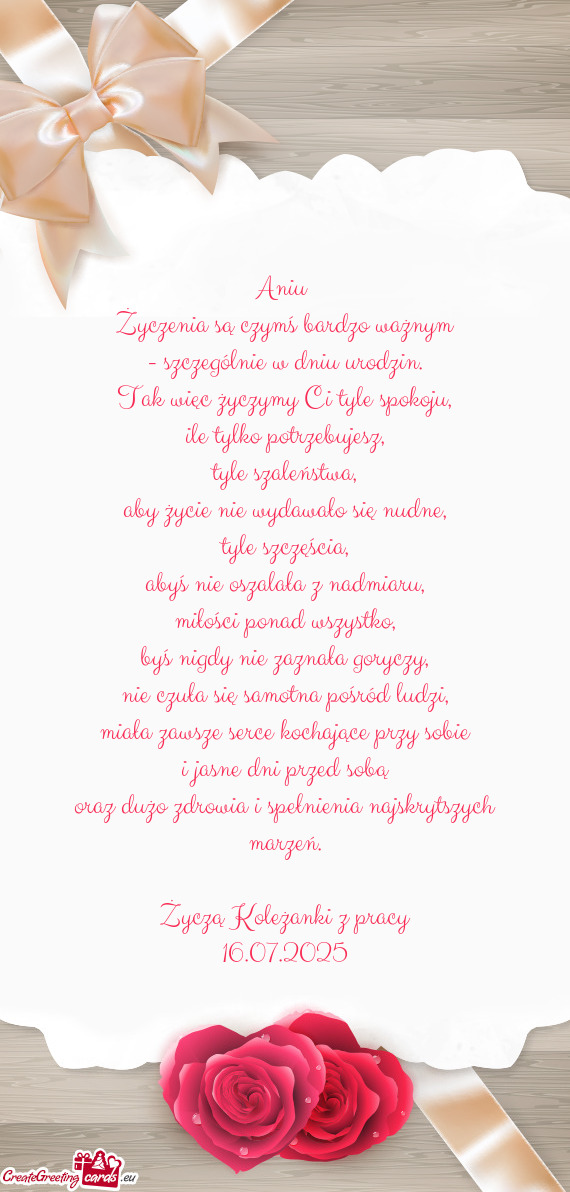 Aniu
Życzenia są czymś bardzo ważnym
- szczególnie w dniu urodzin.
Tak więc życzymy Ci tyle spokoju,
ile tylko potrzebujesz,
tyle szaleństwa,
aby życie nie wydawało się nudne,
tyle szczęścia,
abyś nie oszalała z nadmiaru,
miłości ponad wszystko,
byś nigdy nie zaznała goryczy,
nie czuła się samotna pośród ludzi,
miała zawsze serce kochające przy sobie
i jasne dni przed sobą
oraz dużo zdrowia i spełnienia najskrytszych
marzeń.
Życzą Koleżanki z pracy
16.07.2025
CreateGreeting cards .eu